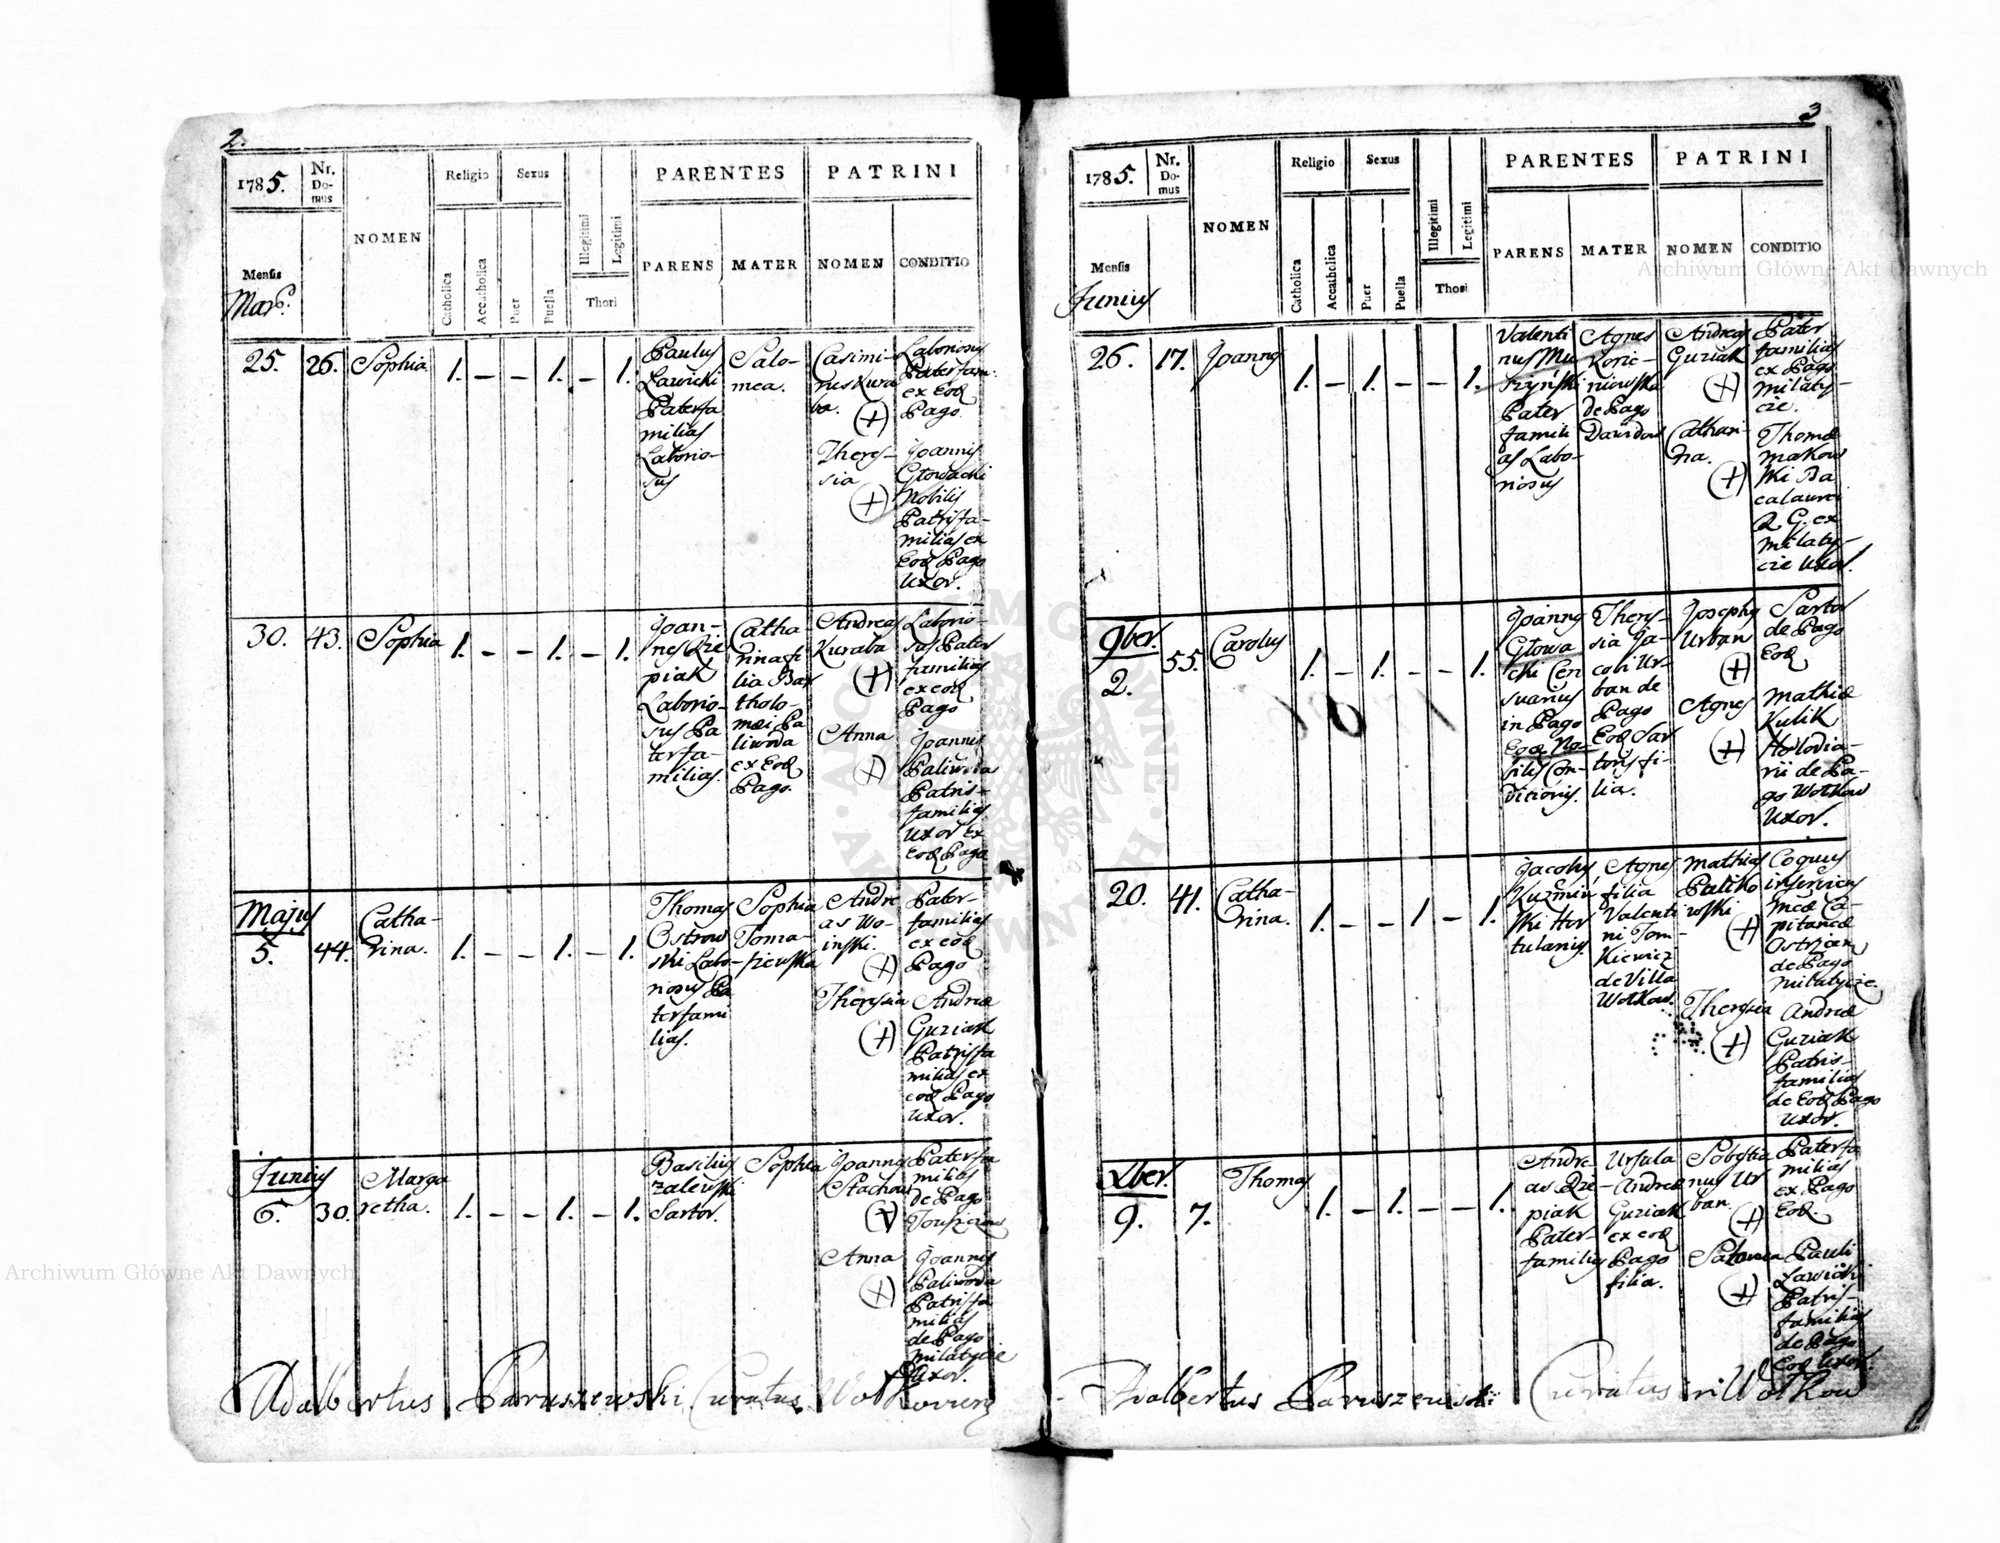 2.
1785.
Nr. Do-
mus
NOMEN
Religio
Sexus
Illegitimi
Legitimi
Thori
PARENTES
PATRINI
Mensis
Catholica
Accatholica
Puer
Puella
PARENS
MATER
NOMEN
CONDITIO
25.
26.
Sophia
1. – – 1. – 1.
Paulus
Ławicki
Paterfa
milias
Laborio-
sus
Salo-
mea.
Casimi-
rus Kura
ba.
Theres-
sia
Laboriosus
Paterfam:
ex Eod
Pago.
Joannis
Głowacki
Nobilis
Patrisfa-
milias ex
Eod Pago
Uxor.
30.
43.
Sophia
1. – – 1. – 1.
Joan-
nes Rze
piak
Laborio-
sus Pa
terfa-
milias.
Catha-
rina fi
lia Bar
tholo-
mæi Pa
liwoda
ex Eod
Pago.
Andreas
Kuraba
Anna
Laborio-
sus Pater
familias
ex eod
Pago
Joannis
Paliwoda
Patris-
familias
Uxor Ex
Eod Pago
Majus
5.
44.
Catha-
rina.
1. – – 1. – 1.
Thomas
Ostrow
ski Labo-
riosus Pa
terfami
lias.
Sophia
Toma-
szewska
Andre
as Wo-
inski.
Theresia
Pater-
familias
ex eod
Pago
Andreæ
Guziak
Patrisfa
milias ex
eod Pago
Uxor.
Junius
6.
30.
Marga
retha.
1. – – 1. – 1.
Basilius
Zalewski
Sartor.
Sophia
Joannes
Stachow
Anna
Paterfa
milias
de Pago
Joannis
Paliwoda
Patrisfa-
milias
de Pago
Milatycze
Uxor.
Adalbertus Paruszewski Curatus
3
1785.
Nr. Do-
mus
NOMEN
Religio
Sexus
Illegitimi
Legitimi
Thori
PARENTES
PATRINI
Mensis
Junius
Catholica
Accatholica
Puer
Puella
PARENS
MATER
NOMEN
CONDITIO
26.
17.
Joannes
1. – 1. – – 1.
Valenti
nus Mu
szyński
Pater
famili
as Labo-
riosus
Agnes
Korze-
niowska
de Pago
Dawidow
Andreas
Guziak
Cathari-
na.
Pater
familias
ex Pago
Milaty-
cze.
Thomæ
Makow
ski Ba
calaurei
R. G. ex
Milaty-
cze Uxor.
9ber.
2.
55.
Carolus
1. – 1. – – 1.
Joannes
Głowa
cki Cen
suarius
in Pago
Eod No-
bilis Con-
ditionis.
There-
sia Ja-
cobi Ur-
ban de
Pago
Eod Sar
toris fi-
lia.
Josephus
Urban
Agnes
Sartor
de Pago
Eod
Mathiæ
Kulik
Holodia-
rii de Pa-
go Wołkow
Uxor.
20.
41.
Catha-
rina.
1. – – 1 – 1.
Jacobus
Kuźmin
ski Hor
tulanus.
Agnes
filia
Valenti
ni Tom-
kiewicz
de Villa
Wołkow.
Mathias
Paliko
wski
Theresia
Coquus
inserviens
Capitaneæ
de Pago
Milatycze.
Andreæ
Guziak
Patris-
familias
de Eod Pago
Uxor.
Xber.
9.
7.
Thomas
1. – 1. – – 1.
Andre-
as Rze-
piak
Pater-
familias
Ursula
Andreæ
Guziak
ex eod
Pago
filia.
Sebastia
nus Ur
ban.
Salomea
Paterfa
milias
ex Pago
Eod.
Pauli
Ławicki
Patris-
familias
de Pago
Eod Uxor.
Adalbertus Paruszewski Curatus in Wołkow
Archiwum Główne Akt Dawnych
Archiwum Główne Akt Dawnych